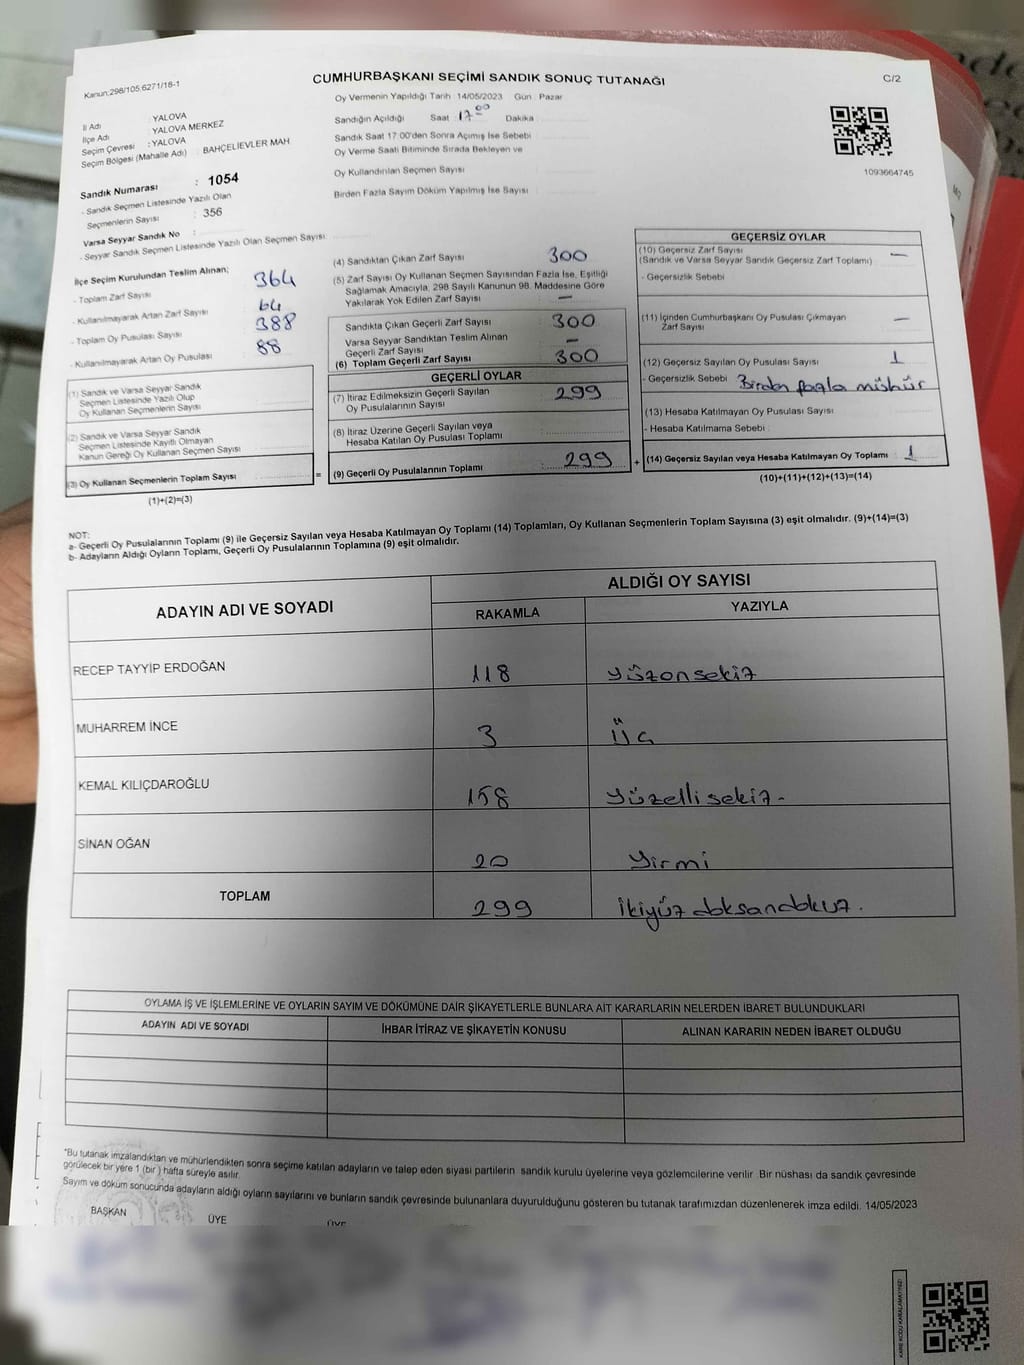 Kanun:298/105,6271/18-1
CUMHURBAŞKANI SEÇİMİ SANDIK SONUÇ TUTANAĞI
C/2
Oy Vermenin Yapıldığı Tarih :14/05/2023 Gün : Pazar
Sandığın Açıldığı Saat :17 00 Dakika :
Sandık Saat 17:00'den Sonra Açımış İse Sebebi :
Oy Verme Saati Bitiminde Sırada Bekleyen ve
Oy Kullandırılan Seçmen Sayısı :
Birden Fazla Sayım Döküm Yapılmış İse Sayısı :
1093664745
İl Adı : YALOVA
İlçe Adı : YALOVA MERKEZ
Seçim Çevresi : YALOVA
Seçim Bölgesi (Mahalle Adı) : BAHÇELİEVLER MAH
Sandık Numarası : 1054
- Sandık Seçmen Listesinde Yazılı Olan
Seçmenlerin Sayısı : 356
Varsa Seyyar Sandık No :
- Seyyar Sandık Seçmen Listesinde Yazılı Olan Seçmen Sayısı:
İlçe Seçim Kurulundan Teslim Alınan;
- Toplam Zarf Sayısı 364
- Kullanılmayarak Artan Zarf Sayısı 64
- Toplam Oy Pusulası Sayısı 388
- Kullanılmayarak Artan Oy Pusulası 88
(1) Sandık ve Varsa Seyyar Sandık
Seçmen Listesinde Yazılı Olup
Oy Kullanan Seçmenlerin Sayısı
(2) Sandık ve Varsa Seyyar Sandık
Seçmen Listesinde Kayıtlı Olmayan
Kanun Gereği Oy Kullanan Seçmen Sayısı
(3) Oy Kullanan Seçmenlerin Toplam Sayısı :
(1)+(2)=(3)
=
(4) Sandıktan Çıkan Zarf Sayısı : 300
(5) Zarf Sayısı Oy Kullanan Seçmen Sayısından Fazla İse, Eşitliği
Sağlamak Amacıyla, 298 Sayılı Kanunun 98. Maddesine Göre
Yakılarak Yok Edilen Zarf Sayısı : —
Sandıkta Çıkan Geçerli Zarf Sayısı : 300
Varsa Seyyar Sandıktan Teslim Alınan
Geçerli Zarf Sayısı : —
(6) Toplam Geçerli Zarf Sayısı : 300
GEÇERLİ OYLAR
(7) İtiraz Edilmeksizin Geçerli Sayılan
Oy Pusulalarının Sayısı : 299
(8) İtiraz Üzerine Geçerli Sayılan veya
Hesaba Katılan Oy Pusulası Toplamı :
(9) Geçerli Oy Pusulalarının Toplamı : 299
+
GEÇERSİZ OYLAR
(10) Geçersiz Zarf Sayısı
(Sandık ve Varsa Seyyar Sandık Geçersiz Zarf Toplamı) : —
- Geçersizlik Sebebi :
(11) İçinden Cumhurbaşkanı Oy Pusulası Çıkmayan
Zarf Sayısı : —
(12) Geçersiz Sayılan Oy Pusulası Sayısı : 1
- Geçersizlik Sebebi : Birden fazla mühür
(13) Hesaba Katılmayan Oy Pusulası Sayısı :
- Hesaba Katılmama Sebebi :
(14) Geçersiz Sayılan veya Hesaba Katılmayan Oy Toplamı : 1
(10)+(11)+(12)+(13)=(14)
NOT:
a- Geçerli Oy Pusulalarının Toplamı (9) ile Geçersiz Sayılan veya Hesaba Katılmayan Oy Toplamı (14) Toplamları, Oy Kullanan Seçmenlerin Toplam Sayısına (3) eşit olmalıdır. (9)+(14)=(3)
b- Adayların Aldığı Oyların Toplamı, Geçerli Oy Pusulalarının Toplamına (9) eşit olmalıdır.
ADAYIN ADI VE SOYADI
ALDIĞI OY SAYISI
RAKAMLA YAZIYLA
RECEP TAYYİP ERDOĞAN 118 yüzonsekiz
MUHARREM İNCE 3 Üç
KEMAL KILIÇDAROĞLU 158 yüzellisekiz-
SİNAN OĞAN 20 yirmi
TOPLAM 299 ikiyüz doksandokuz.
OYLAMA İŞ VE İŞLEMLERİNE VE OYLARIN SAYIM VE DÖKÜMÜNE DAİR ŞİKAYETLERLE BUNLARA AİT KARARLARIN NELERDEN İBARET BULUNDUKLARI
ADAYIN ADI VE SOYADI İHBAR İTİRAZ VE ŞİKAYETİN KONUSU ALINAN KARARIN NEDEN İBARET OLDUĞU
*Bu tutanak imzalandıktan ve mühürlendikten sonra seçime katılan adayların ve talep eden siyasi partilerin sandık kurulu üyelerine veya gözlemcilerine verilir. Bir nüshası da sandık çevresinde
görülecek bir yere 1 (bir ) hafta süreyle asılır.
Sayım ve döküm sonucunda adayların aldığı oyların sayılarını ve bunların sandık çevresinde bulunanlara duyurulduğunu gösteren bu tutanak tarafımızdan düzenlenerek imza edildi. 14/05/2023
BAŞKAN ÜYE ÜYE
KARE KODU KARALAMAYINIZ!